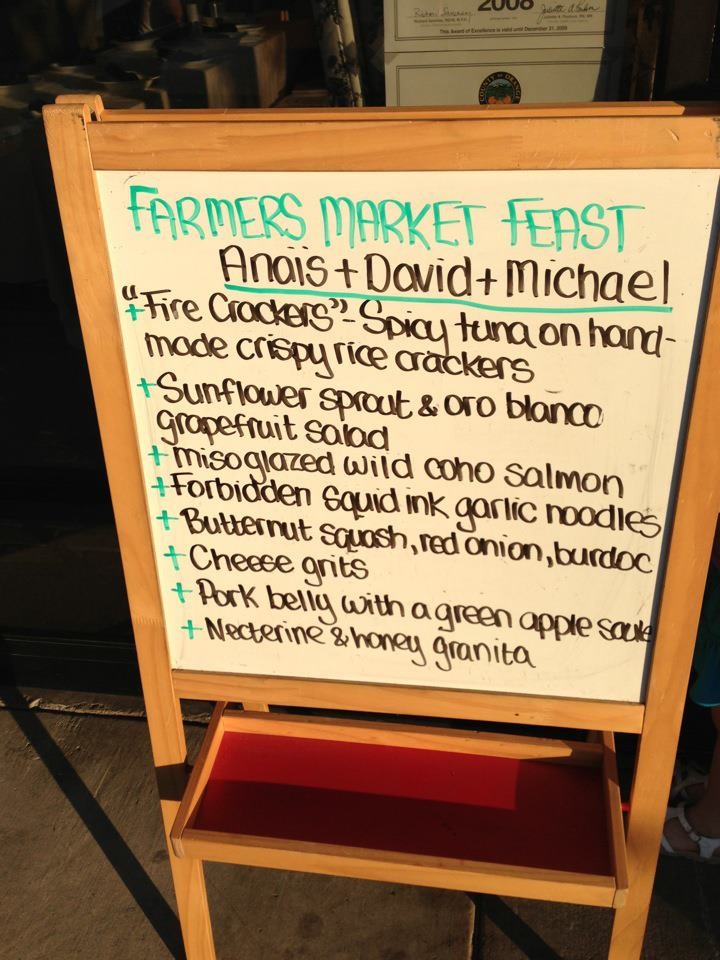 2008
This Award of Excellence is valid until December 31, 2009
COUNTY OF
FARMERS MARKET FEAST
Anaïs + David + Michael
+ "Fire Crackers" - Spicy tuna on hand-
made crispy rice crackers
+ Sunflower sprout & oro blanco
grapefruit salad
+ miso glazed wild coho salmon
+ Forbidden squid ink garlic noodles
+ Butternut squash, red onion, burdoc
+ Cheese grits
+ Pork belly with a green apple
+ Necterine & honey granita